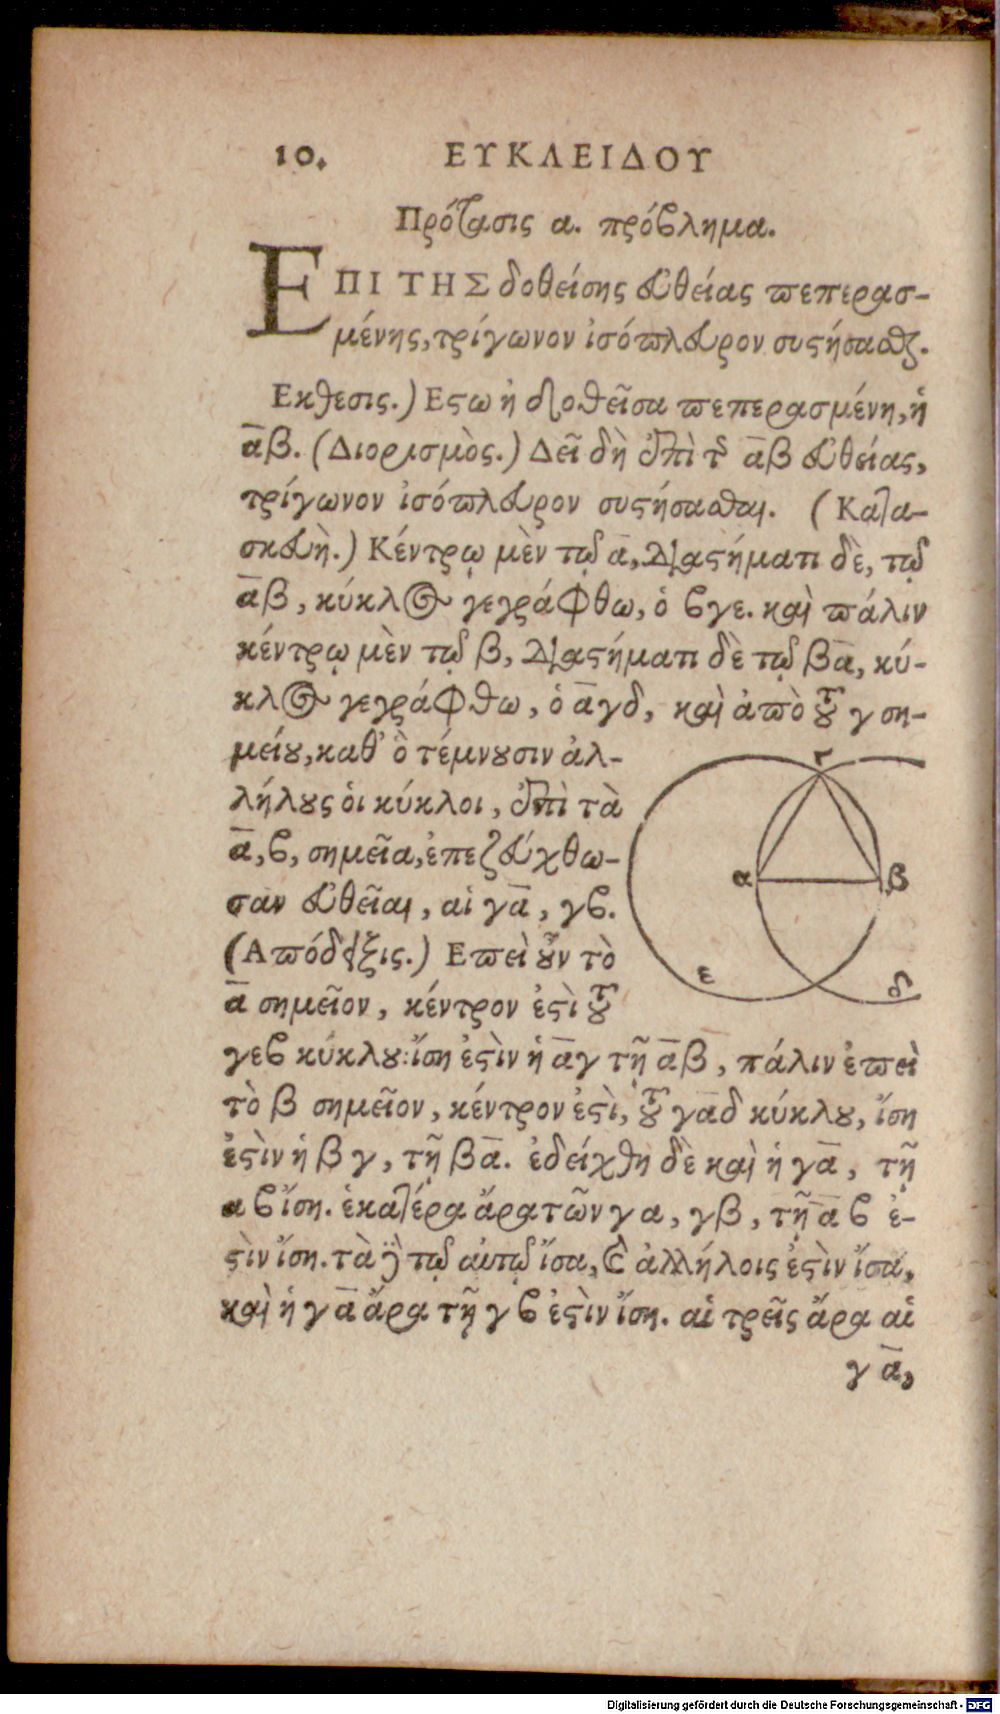 10. ΕΥΚΛΕΙΔΟΥ
Πρότασις α. πρόβλημα.
ΕΠΙ ΤΗΣ δοθείσης εὐθείας πεπερασ-
μένης, τρίγωνον ἰσόπλευρον συστήσασθαι.
Εκθεσις.) Εστω ἡ δοθεῖσα πεπερασμένη, ἡ
α̅β. (Διορισμὸς.) Δεῖ δὴ ἐπὶ τῆς α̅β εὐθείας,
τρίγωνον ἰσόπλευρον συστήσασθαι. (Κατα-
σκευὴ.) Κέντρῳ μὲν τῷ α̅, διαστήματι δὲ, τῷ
α̅β, κύκλος γεγράφθω, ὁ βγε. καὶ πάλιν
κέντρῳ μὲν τῷ β, διαστήματι δὲ τῷ βα̅, κύ-
κλος γεγράφθω, ὁ α̅γδ, καὶ ἀπὸ τοῦ γ ση-
μείου, καθ' ὃ τέμνουσιν ἀλ-
λήλους ὁι κύκλοι, ἐπὶ τὰ
α̅, β, σημεῖα, ἐπεζεύχθω-
σαν εὐθεῖαι, αἱ γα̅, γβ.
(Απόδειξις.) Επεὶ οὖν τὸ
α̅ σημεῖον, κέντρον ἐστὶ τοῦ
γεβ κύκλου: ἴση ἐστὶν ἡ α̅γ τῇ α̅β, πάλιν ἐπεὶ
τὸ β σημεῖον, κέντρον ἐστὶ, τοῦ γα̅δ κύκλου, ἴση
ἐστὶν ἡ βγ, τῇ βα̅. ἐδείχθη δὲ καὶ ἡ γα̅, τῇ
αβ ἴση. ἑκατέρα ἄρα τῶν γα, γβ, τῇ α̅β ἐ-
στὶν ἴση. τὰ δὲ τῷ αὐτῷ ἴσα, καὶ ἀλλήλοις ἐστὶν ἴσα,
καὶ ἡ γα̅ ἄρα τῇ γβ ἐστὶν ἴση. αἱ τρεῖς ἄρα αἱ
γα̅,
Γ
α
β
ε
δ
Digitalisierung gefördert durch die Deutsche Forschungsgemeinschaft - DFG